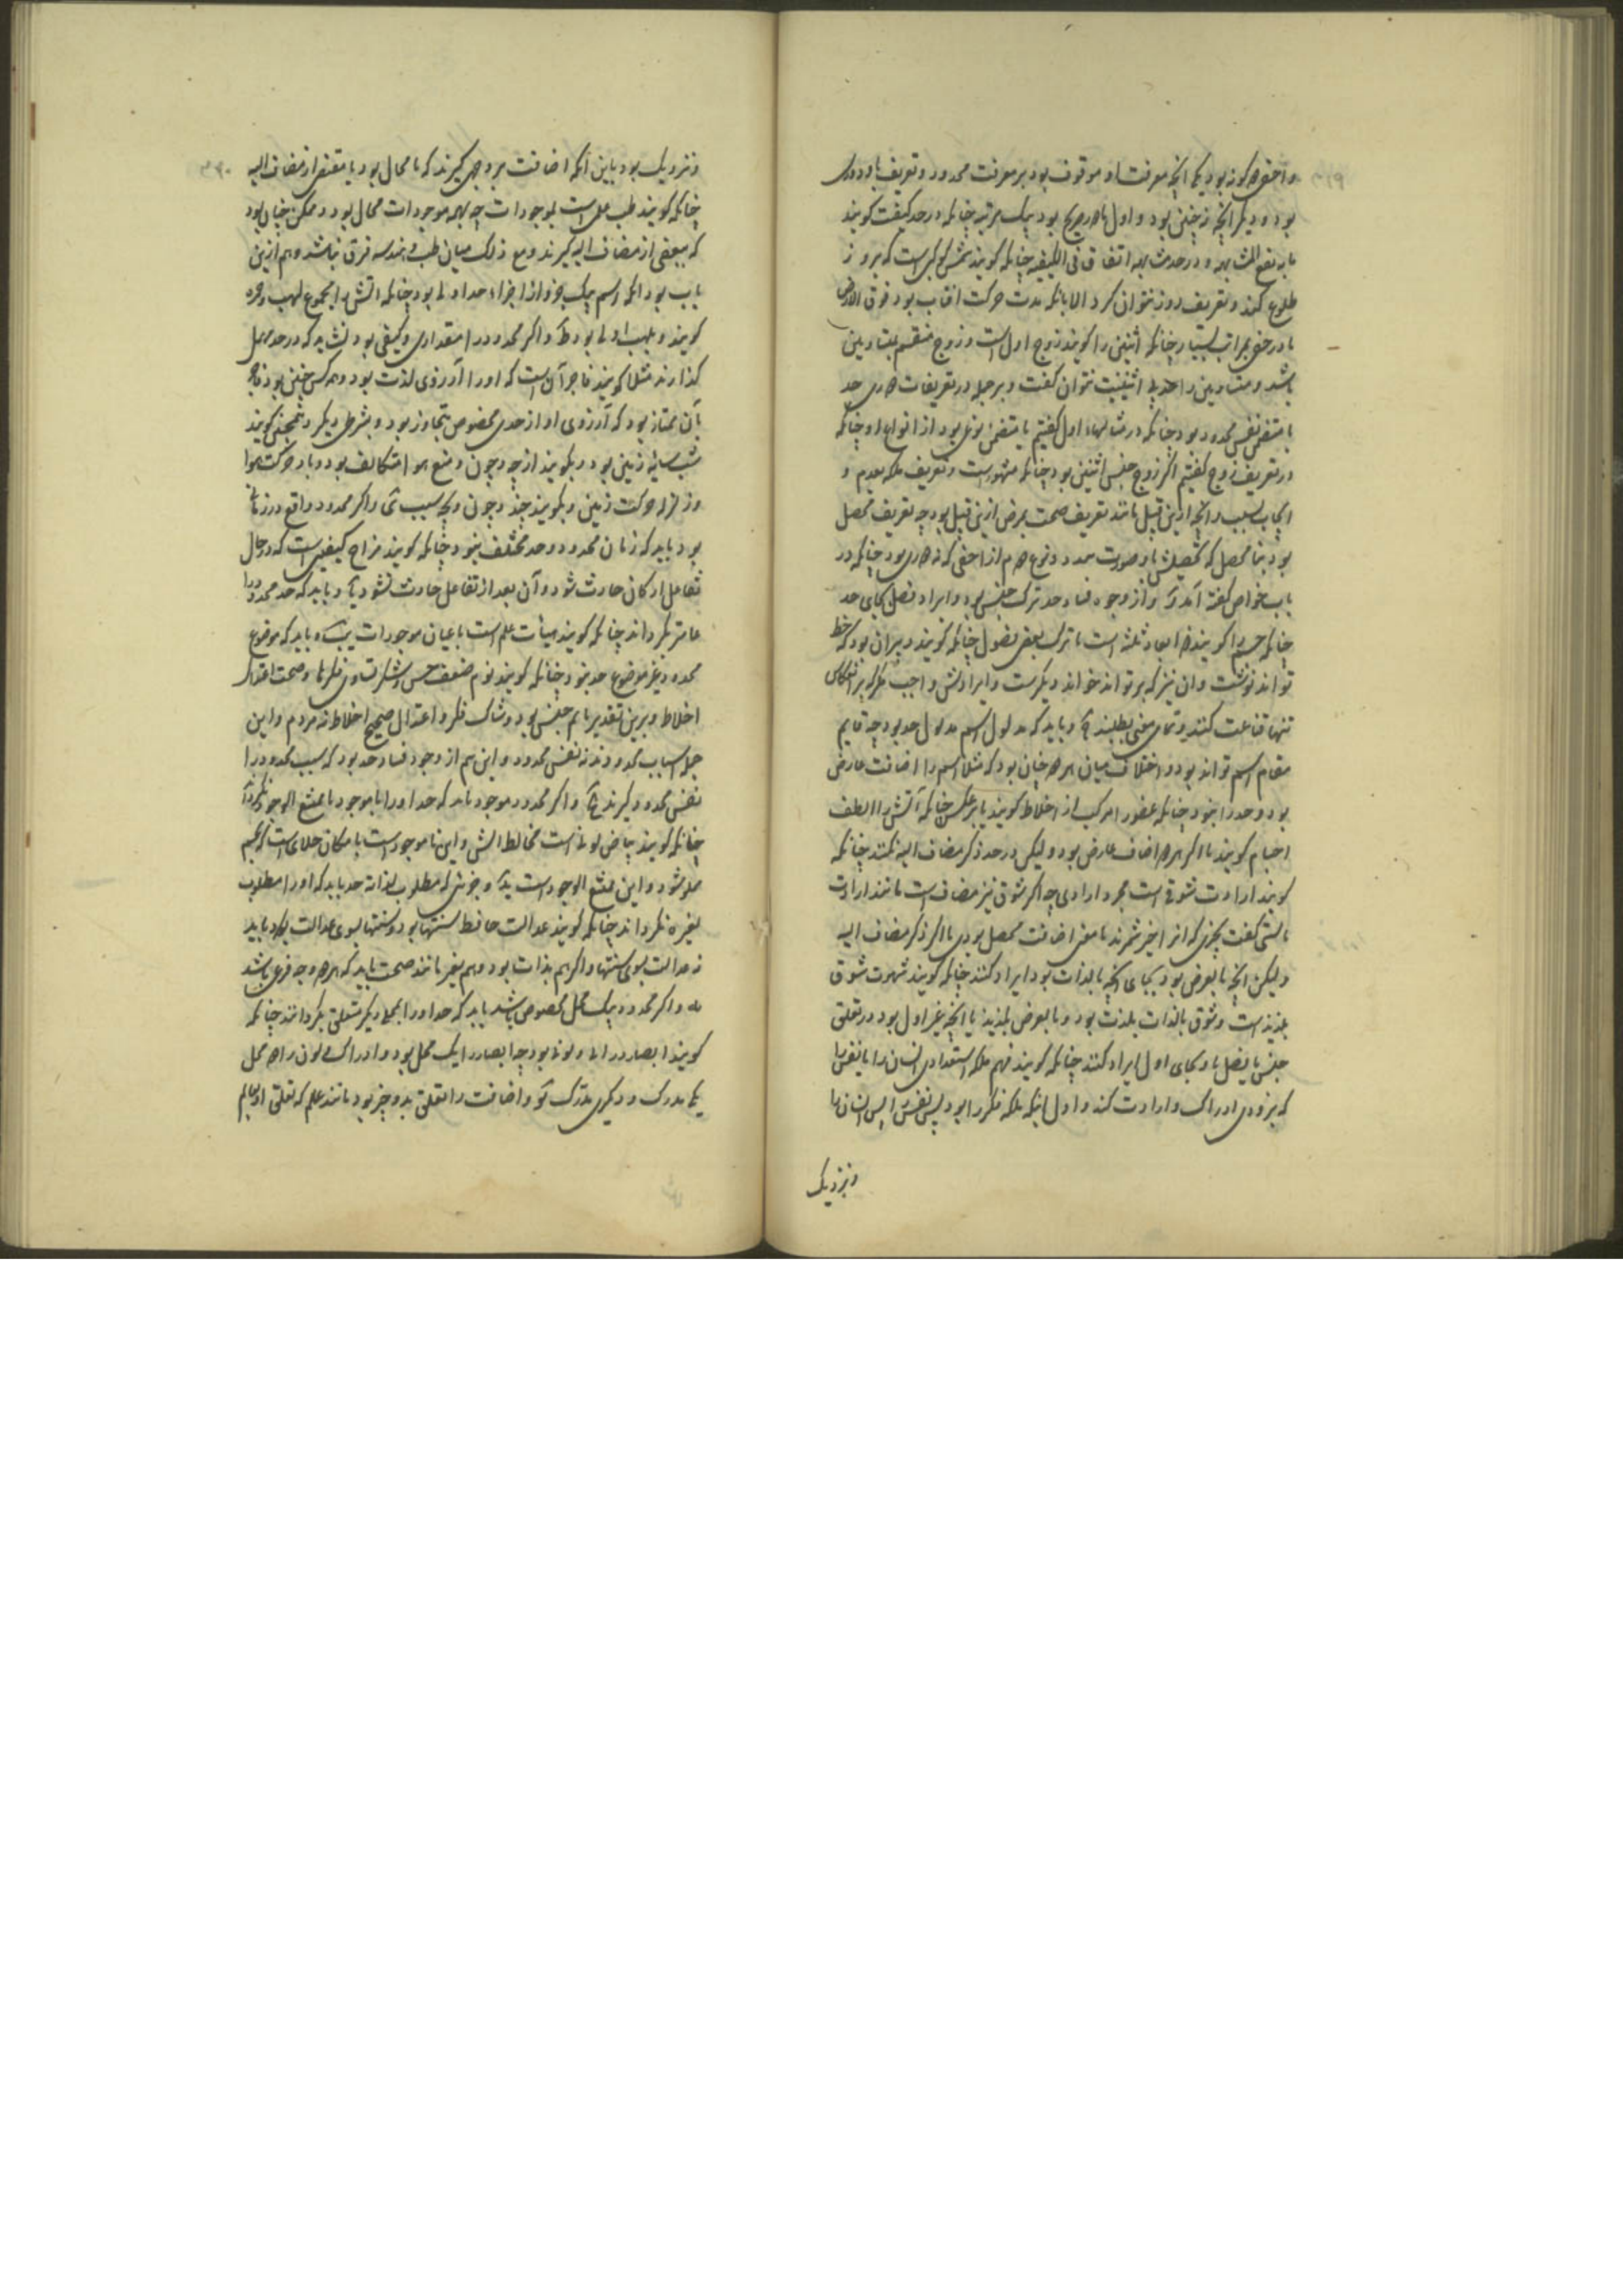 و اخفی هم دو گونه بود یکی آنچه معرفت او موقوف بود بر معرفت محدود و تعریف باو دوری
بود و دیگر آنچه نه چنین بود و اول یا دوری صریح بود بیک مرتبه چنانکه در حد کیفیت گویند
ما به تقع المشابهه و در حد مشابهه اتفاق فی الکیفیه چنانکه گویند شمس کوکبی است که بروز
طلوع کند و تعریف روز نتوان کرد الا بآنکه مدت حرکت آفتاب بود فوق الارض
یا در خفی بمراتب بسیار چنانکه اثنین را گویند زوج اول است و زوج منقسم بمتساویین
باشد و متساویین را حد بی اثنینیت نتوان گفت و بر جمله در تعریفات دوری حد
یا متضمن نفس محدود بود چنانکه در مثالهاء اول گفتیم یا متضمن نوعی بود از انواع او چنانکه
در تعریف زوج گفتیم اگر زوج جنس اثنین بود چنانکه مشهورست و تعریف ملکه بعدم و
ایجاب بسلب و آنچه ازین قبیل مانند تعریف صحت بمرض ازین قبیل بود چه تعریف محصل
بود بنامحصل که تحصیلش باو صورت بندد و نوع دوم از اخفی که نه دوری بود چنانکه در
باب خواص گفته آمد و از وجوه فساد حد ترک جنس بود و ایراد فصل بجای حد
چنانکه جسم را گویند ذو ابعاد ثلثه است یا ترک بعضی فصول چنانکه گویند دبیر آن بود که خط
تواند نوشت و آن نیز که بر تواند خواند دیگرست و ایرادش واجب مگر که بر انعکاس
تنها قناعت کنند و تمامی معنی نطلبند و باید که مدلول اسم مدلول حد بود چه قایم
مقام اسم تواند بود و اختلاف میان هر دو چنان بود که مثلا اسم را اضافت عارض
بود و حد را نبود چنانکه عضو را مرکب از اخلاط گویند یا بر عکس چنانکه آتش را الطف
اجسام گویند یا اگر هر دو را اضافت عارض بود ولیکن در حد ذکر مضاف الیه نکنند چنانکه
گویند ارادت شوقی است مجرد ارادی چه اگر شوق نیز مضاف است مانند ارادت
بایستی گفت بچیزی که از آن خیر شمرند تا معنی اضافت محصل بودی یا اگر ذکر مضاف الیه
ولیکن آنچه بالعرض بود بجای آنچه بالذات بود ایراد کنند چنانکه گویند شهوت شوق
بلذیذ است و شوق بالذات بلذت بود و بالعرض بلذیذ یا آنچه غیر اول بود در تعلق
جنس یا فصل باو بجای اول ایراد کنند چنانکه گویند فهم ملکه استعدادی انسان را یا نفس را
که بزودی ادراک و ارادت کند و اول اینکه ملکه فکر را بود پس نفس را پس انسان را
و نزدیک
و نزدیک بود باین آنکه اضافت بر وجهی گیرند که یا محال بود یا مقتضی از مضاف الیه
چنانکه گویند طب علمی است بموجودات چه بهمه موجودات محال بود و ممکن چنان بود
که ببعضی از مضاف الیه گیرند و مع ذلک میان طب و هندسه فرق نباشد و هم ازین
باب بود آنکه رسم بیک جزو از اجزاء حد اولی بود چنانکه آتش را بمجموع لهب و جمره
گویند و بلهب اولی بود و اگر محدود را مقداری و کیفی بود نشاید که در حد مهمل
گذارند مثلا گویند فاجر آن است که او را آرزوی لذت بود و همه کس چنین بود فاجر
بآن ممتاز بود که آرزوی او از حدی مخصوص متجاوز بود و بشرطی دیگر و همچنین گویند
شب سایه زمین بود و بگویند از چه و چون و میغ هوا متکاثف بود و باد حرکت هوا
و زلزله حرکت زمین و بگویند چند و چون و بچه سبب و اگر محدود واقع در زمانی
بود باید که زمان محدود و حد مختلف نبود چنانکه گویند مزاج کیفیتی است که در حال
تفاعل ارکان حادث شود و آن بعد از تفاعل حادث شود و باید که حد محدود را
عامتر نگرداند چنانکه گویند هیأت علم است باعیان موجودات و باید که موضوع
محدود غیر موضوع حد نبود چنانکه گویند نوم ضعف حس و شک تساوی فکرها و صحت اعتدال
اخلاط و برین تقدیر نایم جنس بود و شاک فکر و اعتدال صحیح اخلاط نه مردم و این
جمله اسباب محدودند نه نفس محدود و این هم از وجوه فساد حد بود که سبب محدود را
نفس محدود گیرند و اگر محدود موجود باید که حد او را ناموجود یا ممتنع الوجود نگرداند
چنانکه گویند بیاض لونی است مخالط آتش و این ناموجود است یا مکان خلائی است که بجسم
مملو شود و این ممتنع الوجود است و چیزی که مطلوب لذاته حد باید که او را مطلوب
لغیره نگرداند چنانکه گویند عدالت حافظ سنتها بود و سنتها بسوی عدالت بود باید
نه عدالت بسوی سنتها و اگر هم بذات بود و هم بغیر مانند صحت باید که هر دو وجه مرعی باشد
و اگر محدود بیک محل مخصوص باشد باید که حد او را بمحلی دیگر متعلق نگرداند چنانکه
گویند ابصار ادراک لونی بود چه ابصار را یک محل بود و ادراک لون را دو محل
یکی مدرک و دیگری مدرک و اضافت را تعلق بدو چیز بود مانند علم که تعلق او بعالم